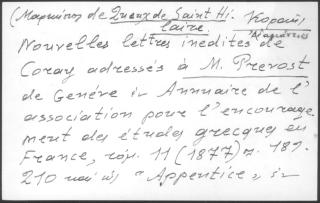 (Μαρκήσιος de Queux de Saint Hi.
laire. Κοραῆς
Ἀδαμάντιος
Nouvelles lettres inédites de
Coray adressés à M. Prevost
de Genéve ἐν Annuaire de l'
association pour l'encourage
ment des études grecques en
France, τόμ. 11 (1877) σ. 189.
210 καὶ ὡς "Appentice" ἐν